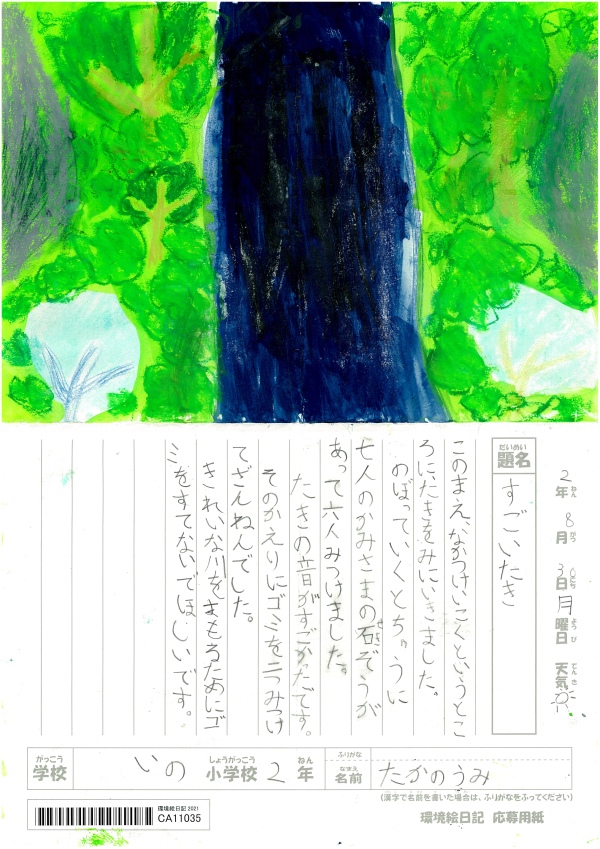 2年 8月 30日 月曜日 天気
ねん がつ にち ようび てんき
だいめい
題名
すごいたき
このまえ、なかつけいこくというとこ
ろに、たきをみにいきました。
のぼっていくとちゅうに
七人のかみさまの石ぞうが
せき
あって六人みつけました。
たきの音がすごかったです。
そのかえりにゴミを二つみつけ
てざんねんでした。
きれいな川をまもるためにゴ
ミをすてないでほしいです。
がっこう しょうがっこう ねん
学校 いの 小学校 2年
ふりがな
なまえ
名前 たかのうみ
(漢字で名前を書いた場合は、ふりがなをふってください)
環境絵日記 2021
CA11035
環境絵日記 応募用紙